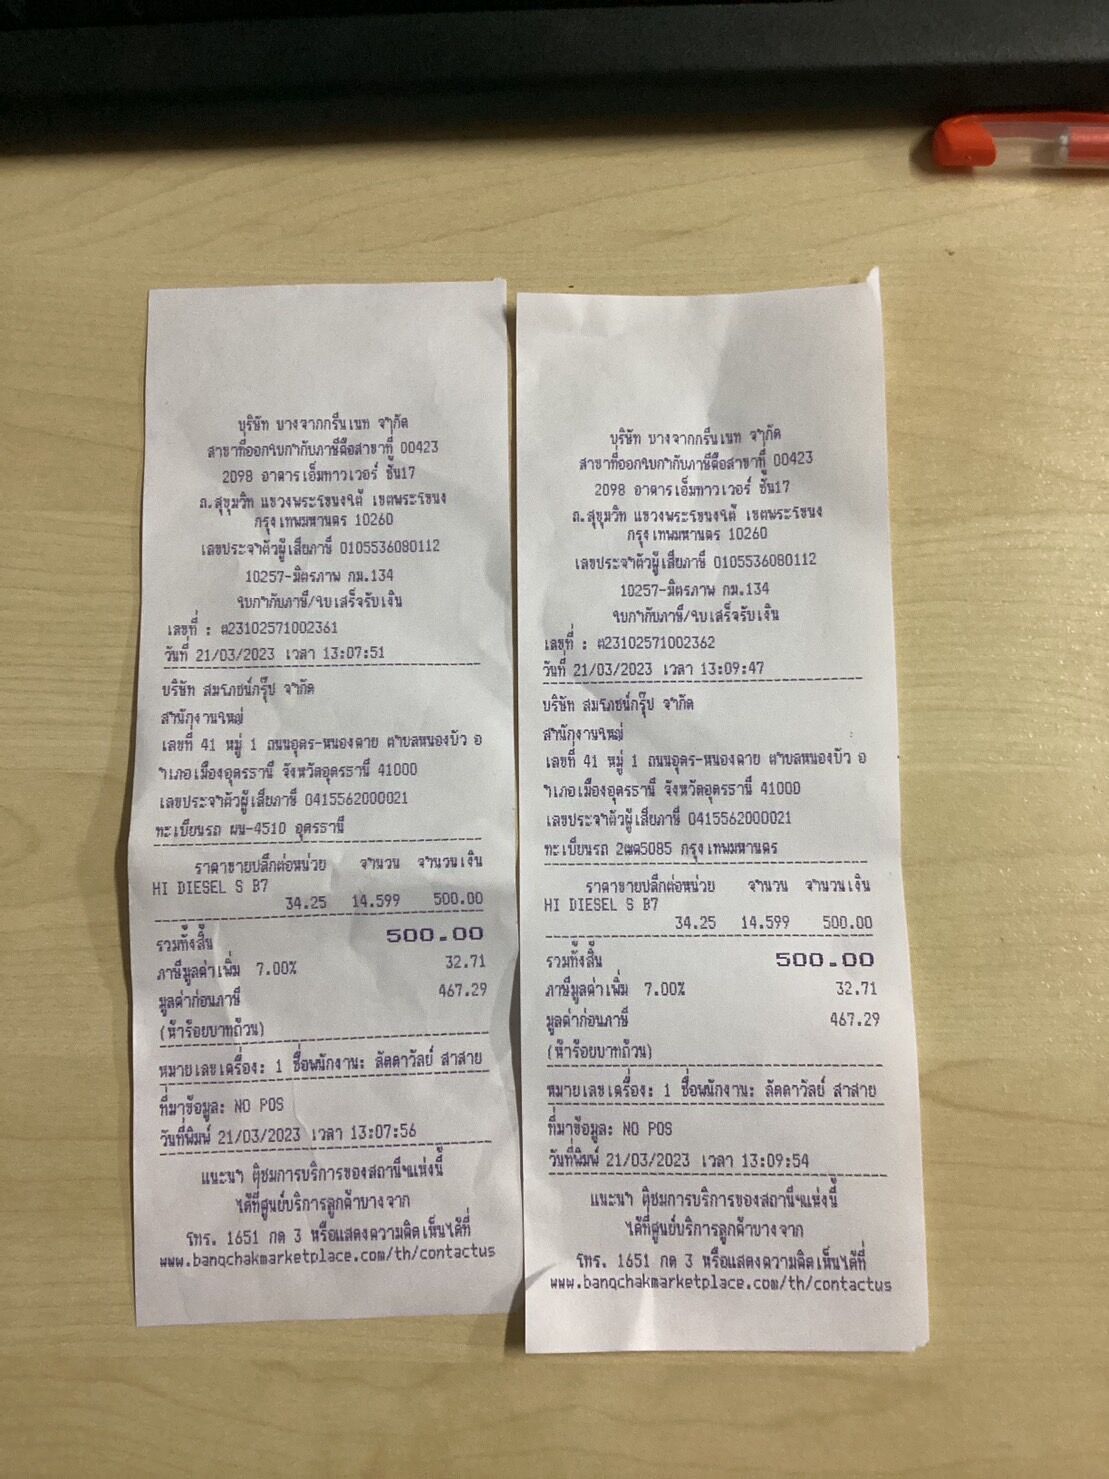 บริษัท บางจากกรีนเนท จำกัด
สาขาที่ออกใบกำกับภาษีคือสาขาที่ 00423
2098 อาคารเอ็มทาวเวอร์ ชั้น17
ถ.สุขุมวิท แขวงพระโขนงใต้ เขตพระโขนง
กรุงเทพมหานคร 10260
เลขประจำตัวผู้เสียภาษี 0105536080112
10257-มิตรภาพ กม.134
ใบกำกับภาษี/ใบเสร็จรับเงิน
เลขที่ : ต23102571002361
วันที่ 21/03/2023 เวลา 13:07:51
บริษัท สมโภชน์กรุ๊ป จำกัด
สำนักงานใหญ่
เลขที่ 41 หมู่ 1 ถนนอุดร-หนองคาย ตำบลหนองบัว อ
ำเภอเมืองอุดรธานี จังหวัดอุดรธานี 41000
เลขประจำตัวผู้เสียภาษี 0415562000021
ทะเบียนรถ ผน-4510 อุดรธานี
ราคาขายปลีกต่อหน่วย จำนวน จำนวนเงิน
HI DIESEL S B7
34.25 14.599 500.00
รวมทั้งสิ้น 500.00
ภาษีมูลค่าเพิ่ม 7.00% 32.71
มูลค่าก่อนภาษี 467.29
(ห้าร้อยบาทถ้วน)
หมายเลขเครื่อง: 1 ชื่อพนักงาน: ลัดดาวัลย์ สาสาย
ที่มาข้อมูล: NO POS
วันที่พิมพ์ 21/03/2023 เวลา 13:07:56
แนะนำ ติชมการบริการของสถานีฯแห่งนี้
ได้ที่ศูนย์บริการลูกค้าบางจาก
โทร. 1651 กด 3 หรือแสดงความคิดเห็นได้ที่
www.bangchakmarketplace.com/th/contactus
บริษัท บางจากกรีนเนท จำกัด
สาขาที่ออกใบกำกับภาษีคือสาขาที่ 00423
2098 อาคารเอ็มทาวเวอร์ ชั้น17
ถ.สุขุมวิท แขวงพระโขนงใต้ เขตพระโขนง
กรุงเทพมหานคร 10260
เลขประจำตัวผู้เสียภาษี 0105536080112
10257-มิตรภาพ กม.134
ใบกำกับภาษี/ใบเสร็จรับเงิน
เลขที่ : ต23102571002362
วันที่ 21/03/2023 เวลา 13:09:47
บริษัท สมโภชน์กรุ๊ป จำกัด
สำนักงานใหญ่
เลขที่ 41 หมู่ 1 ถนนอุดร-หนองคาย ตำบลหนองบัว อ
ำเภอเมืองอุดรธานี จังหวัดอุดรธานี 41000
เลขประจำตัวผู้เสียภาษี 0415562000021
ทะเบียนรถ กรุงเทพมหานคร
ราคาขายปลีกต่อหน่วย จำนวน จำนวนเงิน
HI DIESEL S B7
34.25 14.599 500.00
รวมทั้งสิ้น 500.00
ภาษีมูลค่าเพิ่ม 7.00% 32.71
มูลค่าก่อนภาษี 467.29
(ห้าร้อยบาทถ้วน)
หมายเลขเครื่อง: 1 ชื่อพนักงาน: ลัดดาวัลย์ สาสาย
ที่มาข้อมูล: NO POS
วันที่พิมพ์ 21/03/2023 เวลา 13:09:54
แนะนำ ติชมการบริการของสถานีฯแห่งนี้
ได้ที่ศูนย์บริการลูกค้าบางจาก
โทร. 1651 กด 3 หรือแสดงความคิดเห็นได้ที่
www.bangchakmarketplace.com/th/contactus